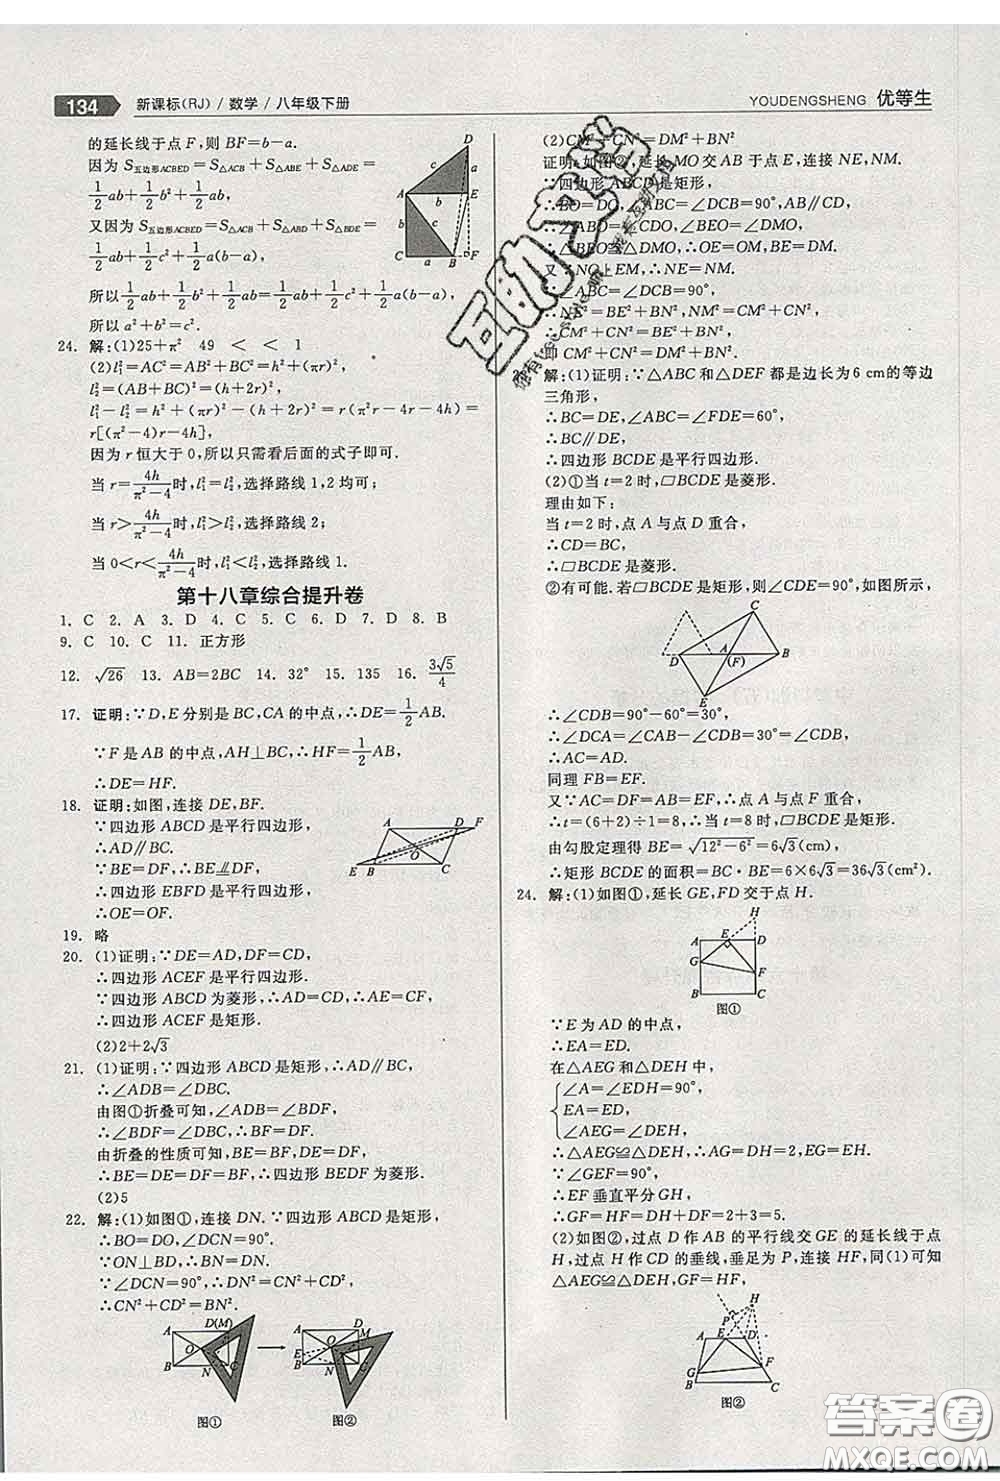 134 新课标(RJ) / 数学 / 八年级下册
YOUDENGSHENG 优等生
的延长线于点 F,则 BF=b-a.
因为 S五边形ACBED=S△ACB+S△ABE+S△ADE=
1/2 ab+1/2 b²+1/2 ab,
又因为 S五边形ACBED=S△ACB+S△ABD+S△BDE=
1/2 ab+1/2 c²+1/2 a(b-a),
所以 1/2 ab+1/2 b²+1/2 ab=1/2 ab+1/2 c²+1/2 a(b-a),
所以 a²+b²=c².
24. 解:(1)25+π² 49 < < 1
(2)l₁²=AC²=AB²+BC²=h²+(πr)²,
l₂²=(AB+BC)²=(h+2r)²,
l₁²-l₂²=h²+(πr)²-(h+2r)²=r(π²r-4r-4h)=
r[(π²-4)r-4h],
因为 r 恒大于 0,所以只需看后面的式子即可.
当 r=4h/(π²-4) 时,l₁²=l₂²,选择路线 1,2 均可;
当 r>4h/(π²-4) 时,l₁²>l₂²,选择路线 2;
当 0<r<4h/(π²-4) 时,l₁²<l₂²,选择路线 1.
第十八章综合提升卷
1. C 2. A 3. D 4. C 5. C 6. D 7. D 8. B
9. C 10. C 11. 正方形
12. √26 13. AB=2BC 14. 32° 15. 135 16. 3√5/4
17. 证明:∵D,E 分别是 BC,CA 的中点,∴DE=1/2 AB.
∵F 是 AB 的中点,AH⊥BC,∴HF=1/2 AB,
∴DE=HF.
18. 证明:如图,连接 DE,BF.
∵四边形 ABCD 是平行四边形,
∴AD∥BC.
∵BE=DF,∴BE∥DF,
∴四边形 EBFD 是平行四边形,
∴OE=OF.
A D F
O
E B C
19. 略
20. (1)证明:∵DE=AD,DF=CD,
∴四边形 ACEF 是平行四边形.
∵四边形 ABCD 为菱形,∴AD=CD,∴AE=CF,
∴四边形 ACEF 是矩形.
(2)2+2√3
21. (1)证明:∵四边形 ABCD 是矩形,∴AD∥BC,
∴∠ADB=∠DBC.
由图①折叠可知,∠ADB=∠BDF,
∴∠DBC=∠BDF,∴BF=DF.
由折叠的性质可知,BE=DE,BF=DF,
∴BE=DE=DF=BF,∴四边形 BEDF 为菱形.
(2)5
22. 解:(1)如图①,连接 DN.∵四边形 ABCD 是矩形,
∴BO=DO,∵∠DON=90°,
∵ON⊥BD,∴BN=DN.
∵∠DCN=90°,∴DN²=CN²+CD²,
∴CN²+CD²=BN².
A D(M)
O
B N C
图①
图②
(2)CM²+CN²=DM²+BN²
证明:如图②,延长 MO 交 AB 于点 E,连接 NE,NM.
∵四边形 ABCD 是矩形,
∴BO=DO,∠ABC=∠DCB=90°,AB∥CD,
∴∠ABO=∠CDO,∠BEO=∠DMO,
∴△BEO≌△DMO,∴OE=OM,BE=DM.
又∵NO⊥EM,∴NE=NM.
∵∠ABC=∠DCB=90°,
∴NE²=BE²+BN²,NM²=CM²+CN²,
∴CM²+CN²=BE²+BN²,
即 CM²+CN²=DM²+BN².
解:(1)证明:∵△ABC 和△DEF 都是边长为6 cm的等边
三角形,
∴BC=DE,∠ABC=∠FDE=60°,
∴BC∥DE,
∴四边形 BCDE 是平行四边形.
(2)①当 t=2 时,▱BCDE 是菱形.
理由如下:
当 t=2 时,点 A 与点 D 重合,
∴CD=BC,
∴▱BCDE 是菱形.
②有可能.若▱BCDE 是矩形,则∠CDE=90°,如图所示,
C
D A (F) B
E
∴∠CDB=90°-60°=30°,
∴∠DCA=∠CAB-∠CDB=30°=∠CDB,
∴AC=AD.
同理 FB=EF.
又∵AC=DF=AB=EF,∴点 A 与点 F 重合,
∴t=(6+2)÷1=8,∴当 t=8 时,▱BCDE 是矩形.
由勾股定理得 BE=√(12²-6²)=6√3(cm),
∴矩形 BCDE 的面积=BC·BE=6×6√3=36√3(cm²).
24. 解:(1)如图①,延长 GE,FD 交于点 H.
H
A E D
G F
B C
图①
∵E 为 AD 的中点,
∴EA=ED.
在△AEG 和△DEH 中,
∠A=∠EDH=90°,
EA=ED,
∠AEG=∠DEH,
∴△AEG≌△DEH,∴AG=DH=2,EG=EH.
∵∠GEF=90°,
∴EF 垂直平分 GH,
∴GF=HF=DH+DF=2+3=5.
(2)如图②,过点 D 作 AB 的平行线交 GE 的延长线于点
H,过点 H 作 CD 的垂线,垂足为 P,连接 HF,同(1)可知
△AEG≌△DEH,GF=HF,
H
P
A E D
F
G
B C
图②
互助文档
答案圈
MXQE.COM